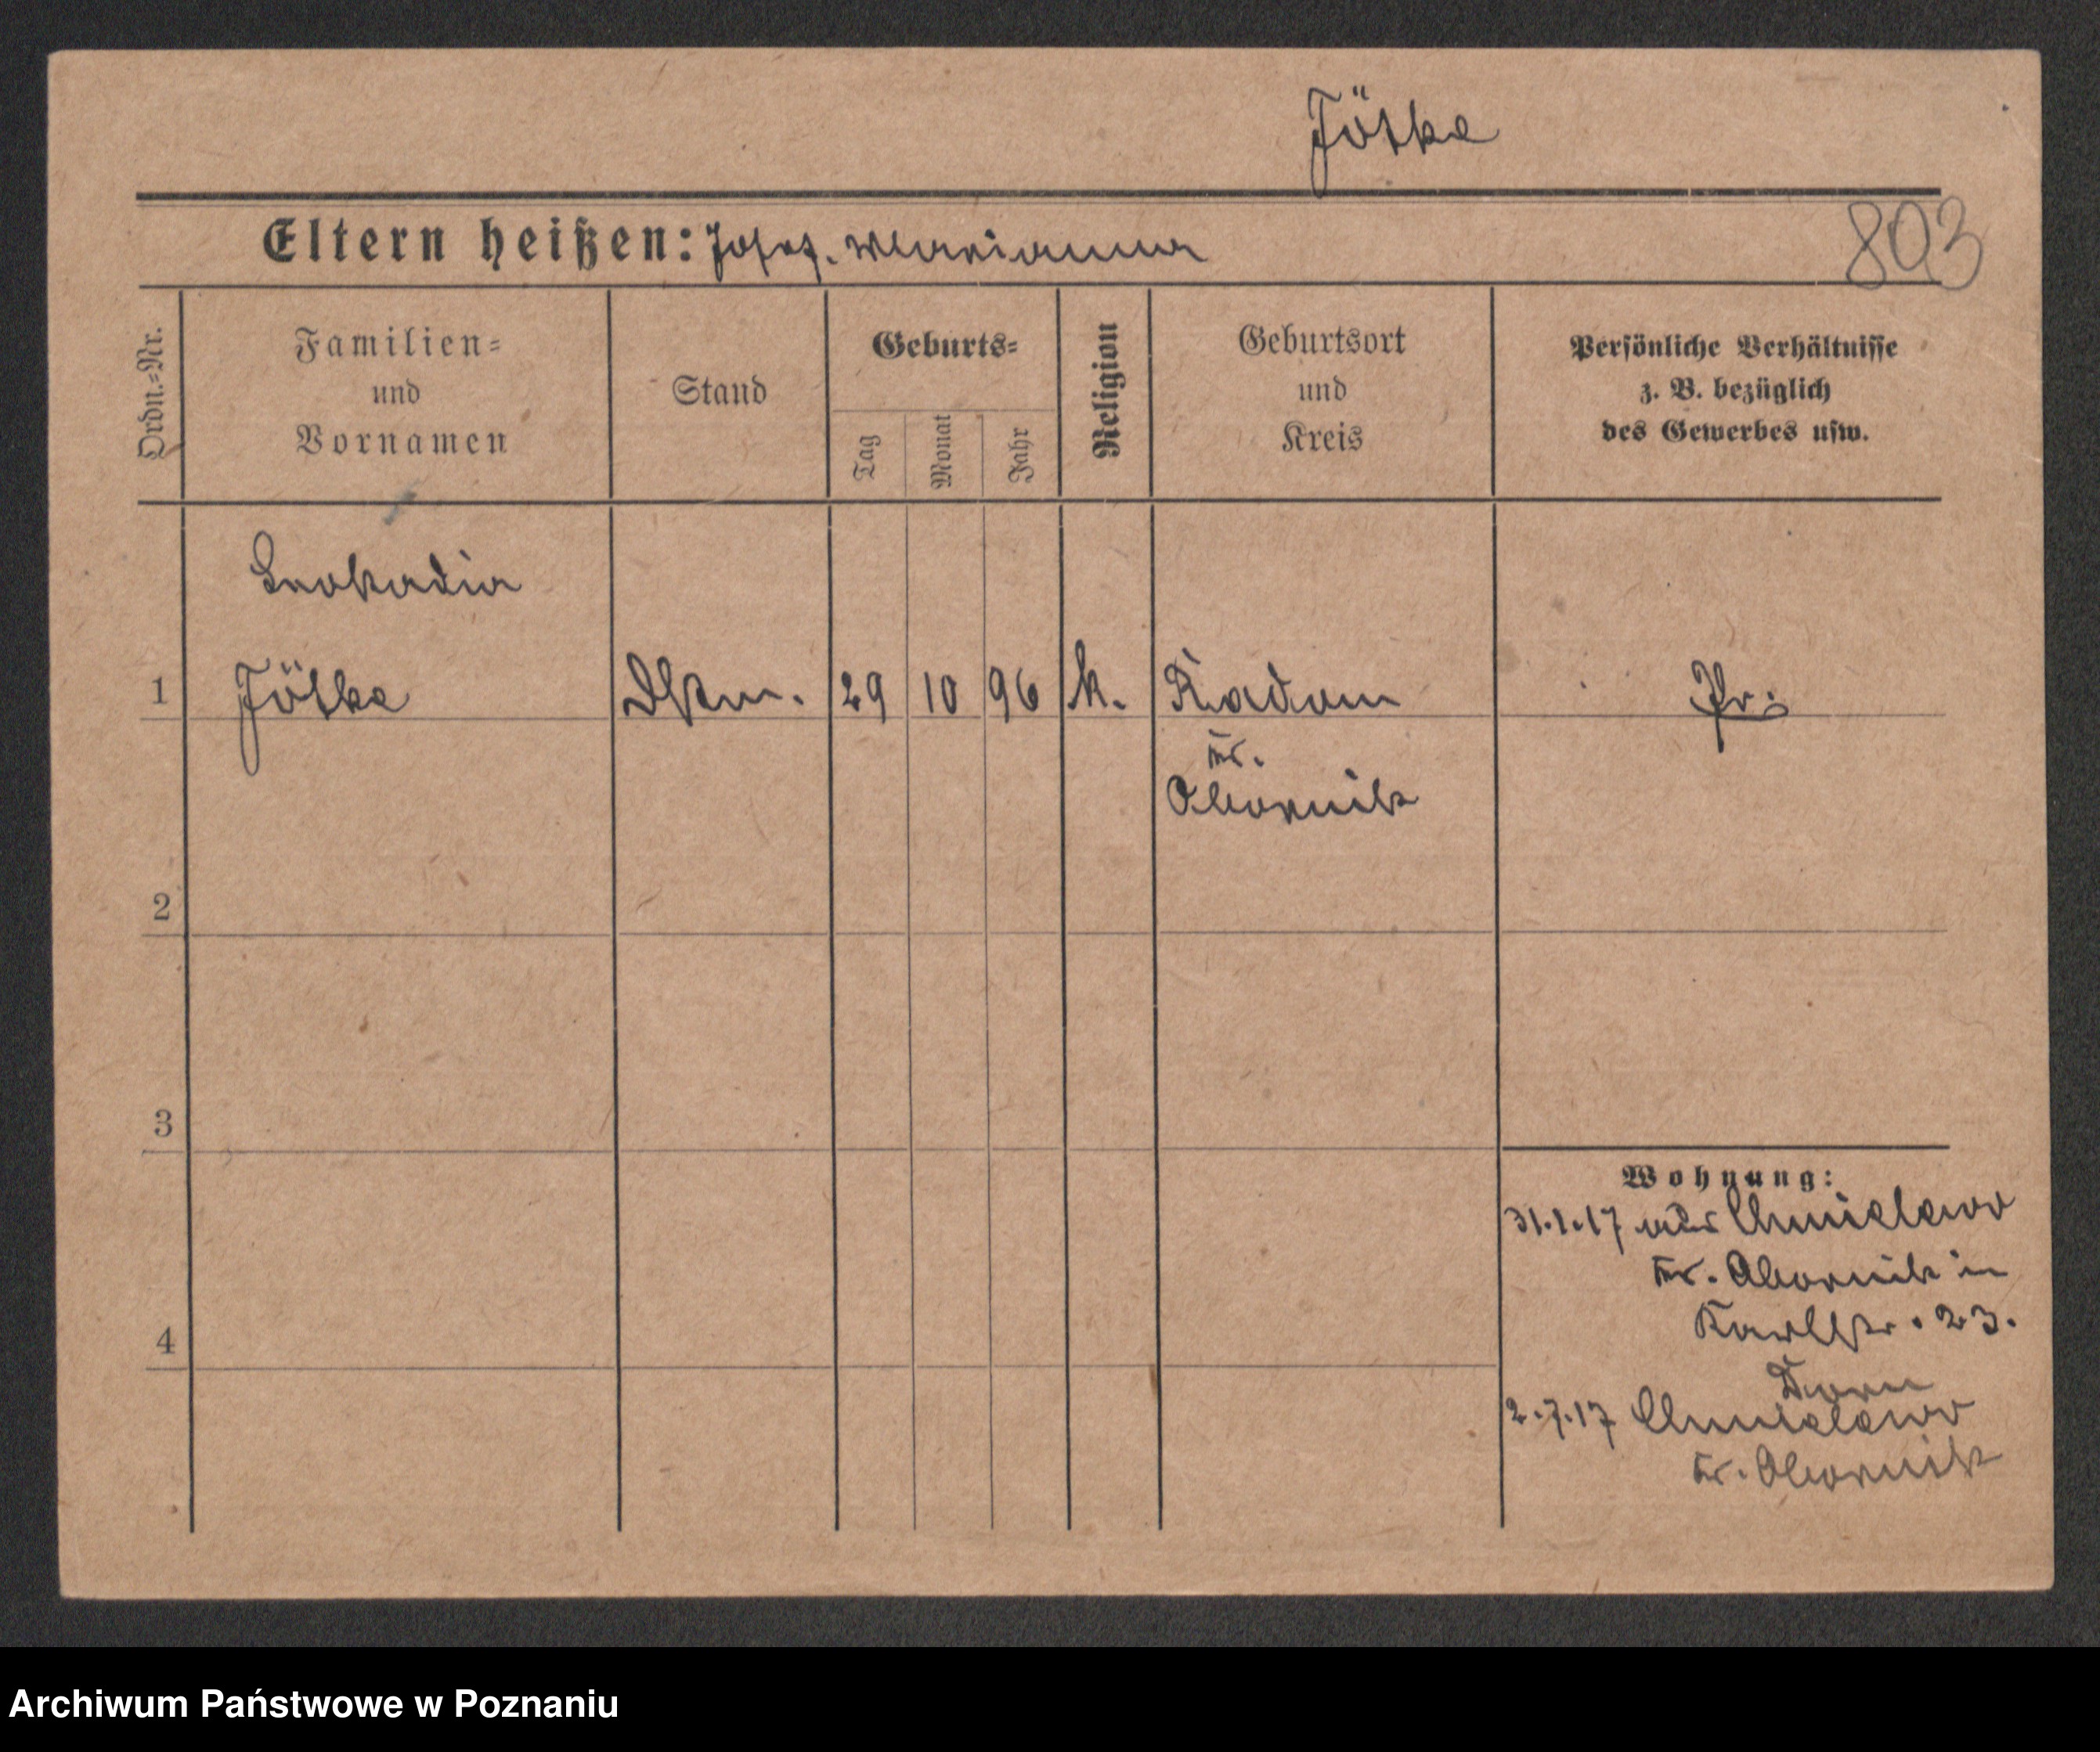 Jöske
Eltern heißen: Josef. Marianna
803
Ordn.=Nr.
Familien=
und
Vornamen
Stand
Geburts=
Tag
Monat
Jahr
Religion
Geburtsort
und
Kreis
Persönliche Verhältnisse
z. B. bezüglich
des Gewerbes usw.
Leokadia
1 Jöske Dstm. 29 10 96 k. Radom Pr.
Kr.
Obornik
2
3
4
Wohnung:
31.1.17 aus Chmielewo
Kr. Obornik in
Karlstr. 23.
Dom
2.7.17 Chmielewo
Kr. Obornik
Archiwum Państwowe w Poznaniu